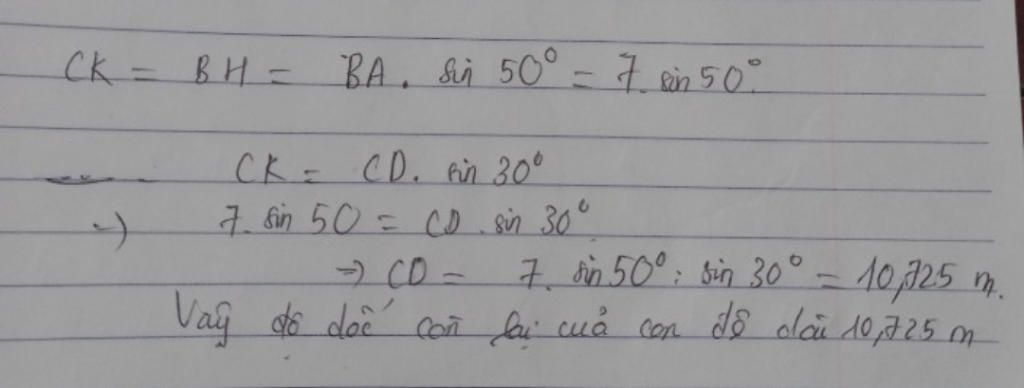 CK = BH = BA. sin 50° = 7. sin 50°.
CK = CD. sin 30°
→) 7. sin 50 = CD . sin 30°
=> CD = 7. sin 50° : sin 30° = 10,725 m.
Vậy độ dốc còn lại của con độ dài 10,725 m